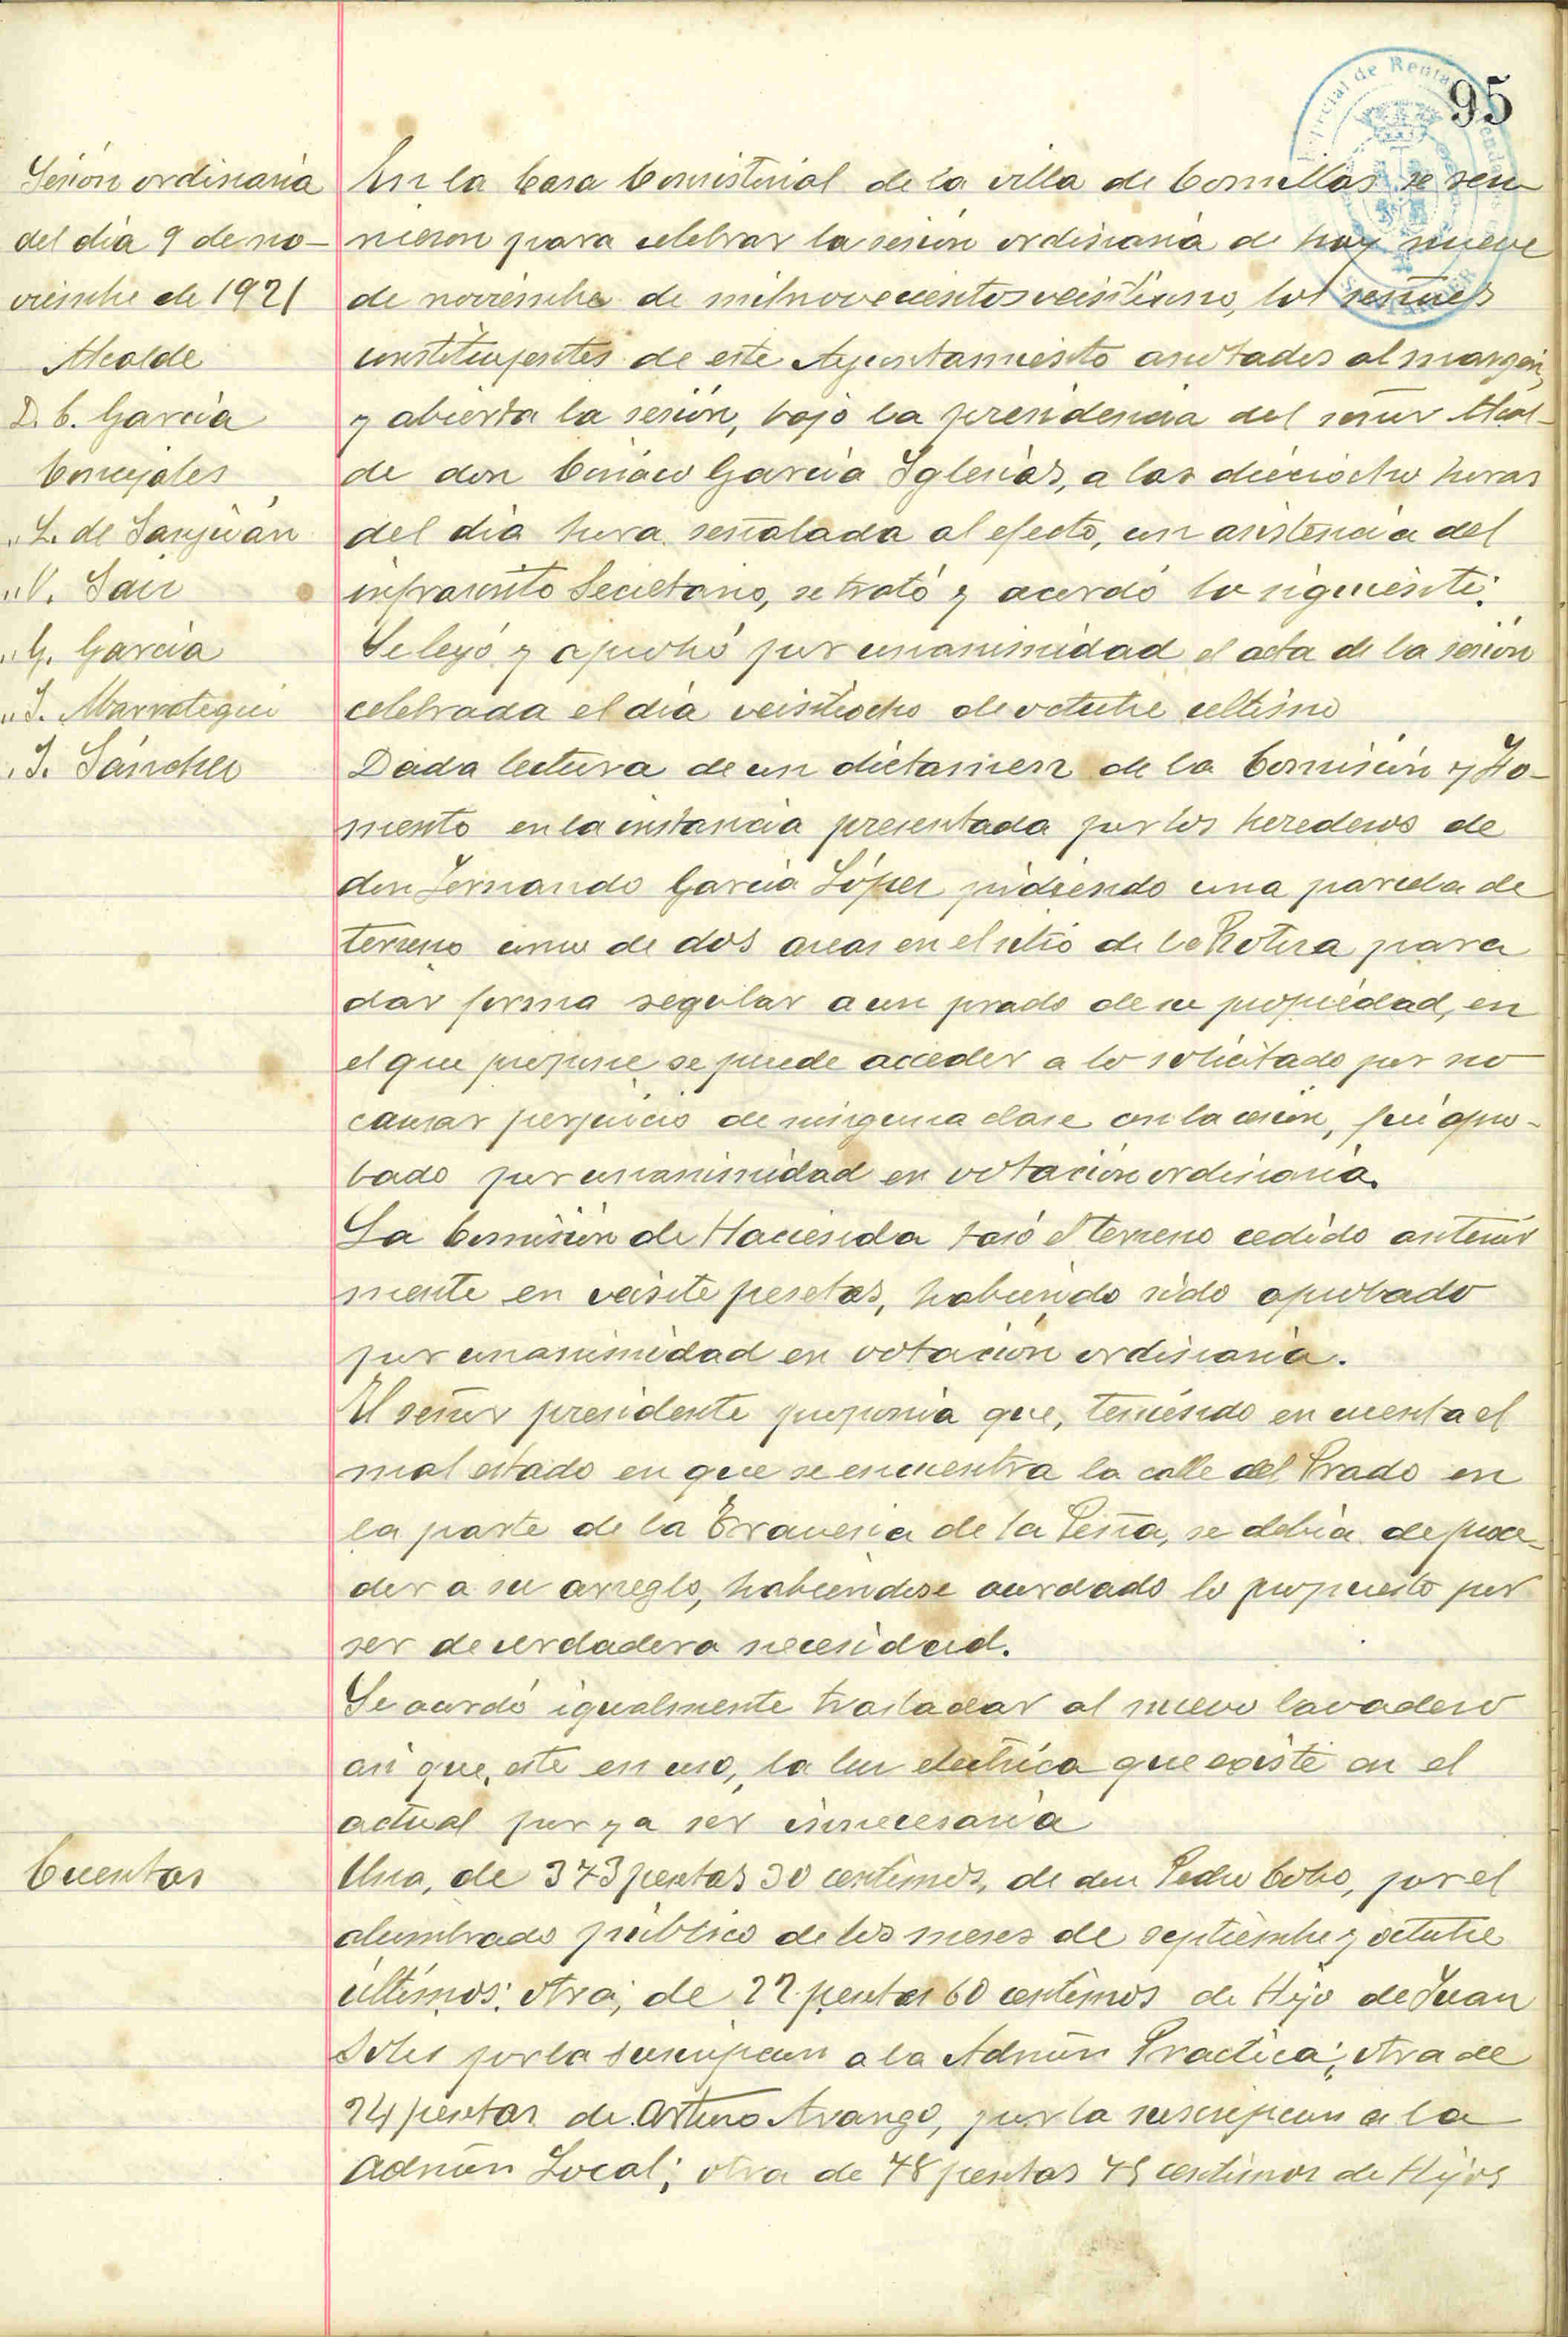 95
Sesión ordinaria
del día 9 de no-
viembre de 1921
Alcalde
D. C. García
Concejales
" L. de Sanjuán
" V. Saiz
" G. García
" I. Marrotegui
" J. Sánchez
En la Casa Consistorial de la villa de Comillas se reu-
nieron para celebrar la sesión ordinaria de hoy nueve
de noviembre de milnovecientosveintiuno, los señores
constituyentes de este Ayuntamiento anotados al margen,
y abierta la sesión, bajo la presidencia del señor Alcal-
de don Ciriaco García Iglesias, a las dieciocho horas
del día hora señalada al efecto, con asistencia del
infrascrito Secretario, se trató y acordó lo siguiente:
Se leyó y aprobó por unanimidad el acta de la sesión
celebrada el día veintiocho de octubre último
Dada lectura de un dictamen de la Comisión y Fo-
mento en la instancia presentada por los herederos de
don Fernando García López pidiendo una parcela de
terreno como de dos areas en el sitio de la Rotura para
dar forma regular a un prado de su propiedad, en
el que propone se puede acceder a lo solicitado por no
causar perjuicio de ninguna clase con la cesión, fué apro-
bado por unanimidad en votación ordinaria.
La Comisión de Hacienda tasó el terreno cedido anterior
mente en veinte pesetas, habiendo sido aprobado
por unanimidad en votación ordinaria.
El señor presidente proponía que, teniendo en cuenta el
mal estado en que se encuentra la calle del Prado en
la parte de la Travesia de la Peña, se debía de proce-
der a su arreglo, habiéndose acordado lo propuesto por
ser de verdadera necesidad.
Se acordó igualmente trasladar al nuevo lavadero
asi que, este en uso, la luz electrica que existe en el
actual por ya ser innecesaria
Cuentas
Una, de 373 pesetas 30 centimos, de don Pedro Cobo, por el
alumbrado público de los meses de septiembre y octubre
últimos; otra; de 22 pesetas 60 centimos de Hijo de Juan
Soler por la suscripcion a la Admón Practica; otra de
24 pesetas de Arturo Arango, por la suscripcion a la
Admón Local; otra de 78 pesetas 45 centimos de Hijos